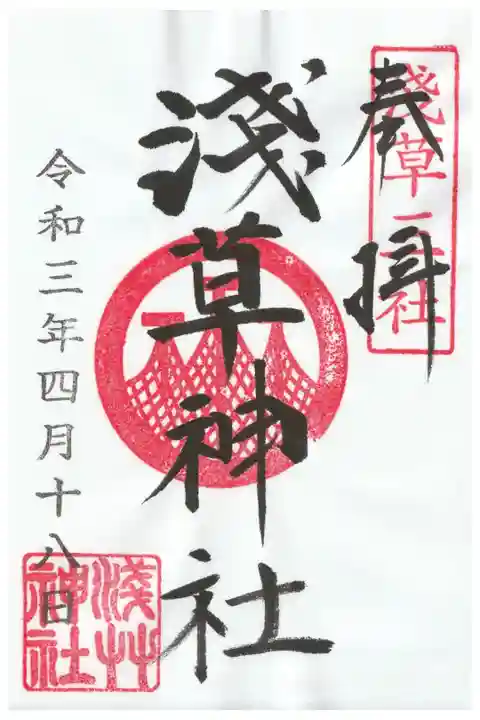 奉拝
淺草三社
淺草神社
令和三年四月十八日
淺草
神社